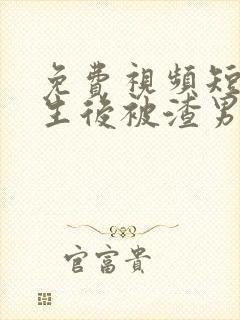 免費視頻短
生後被渣男
官富貴